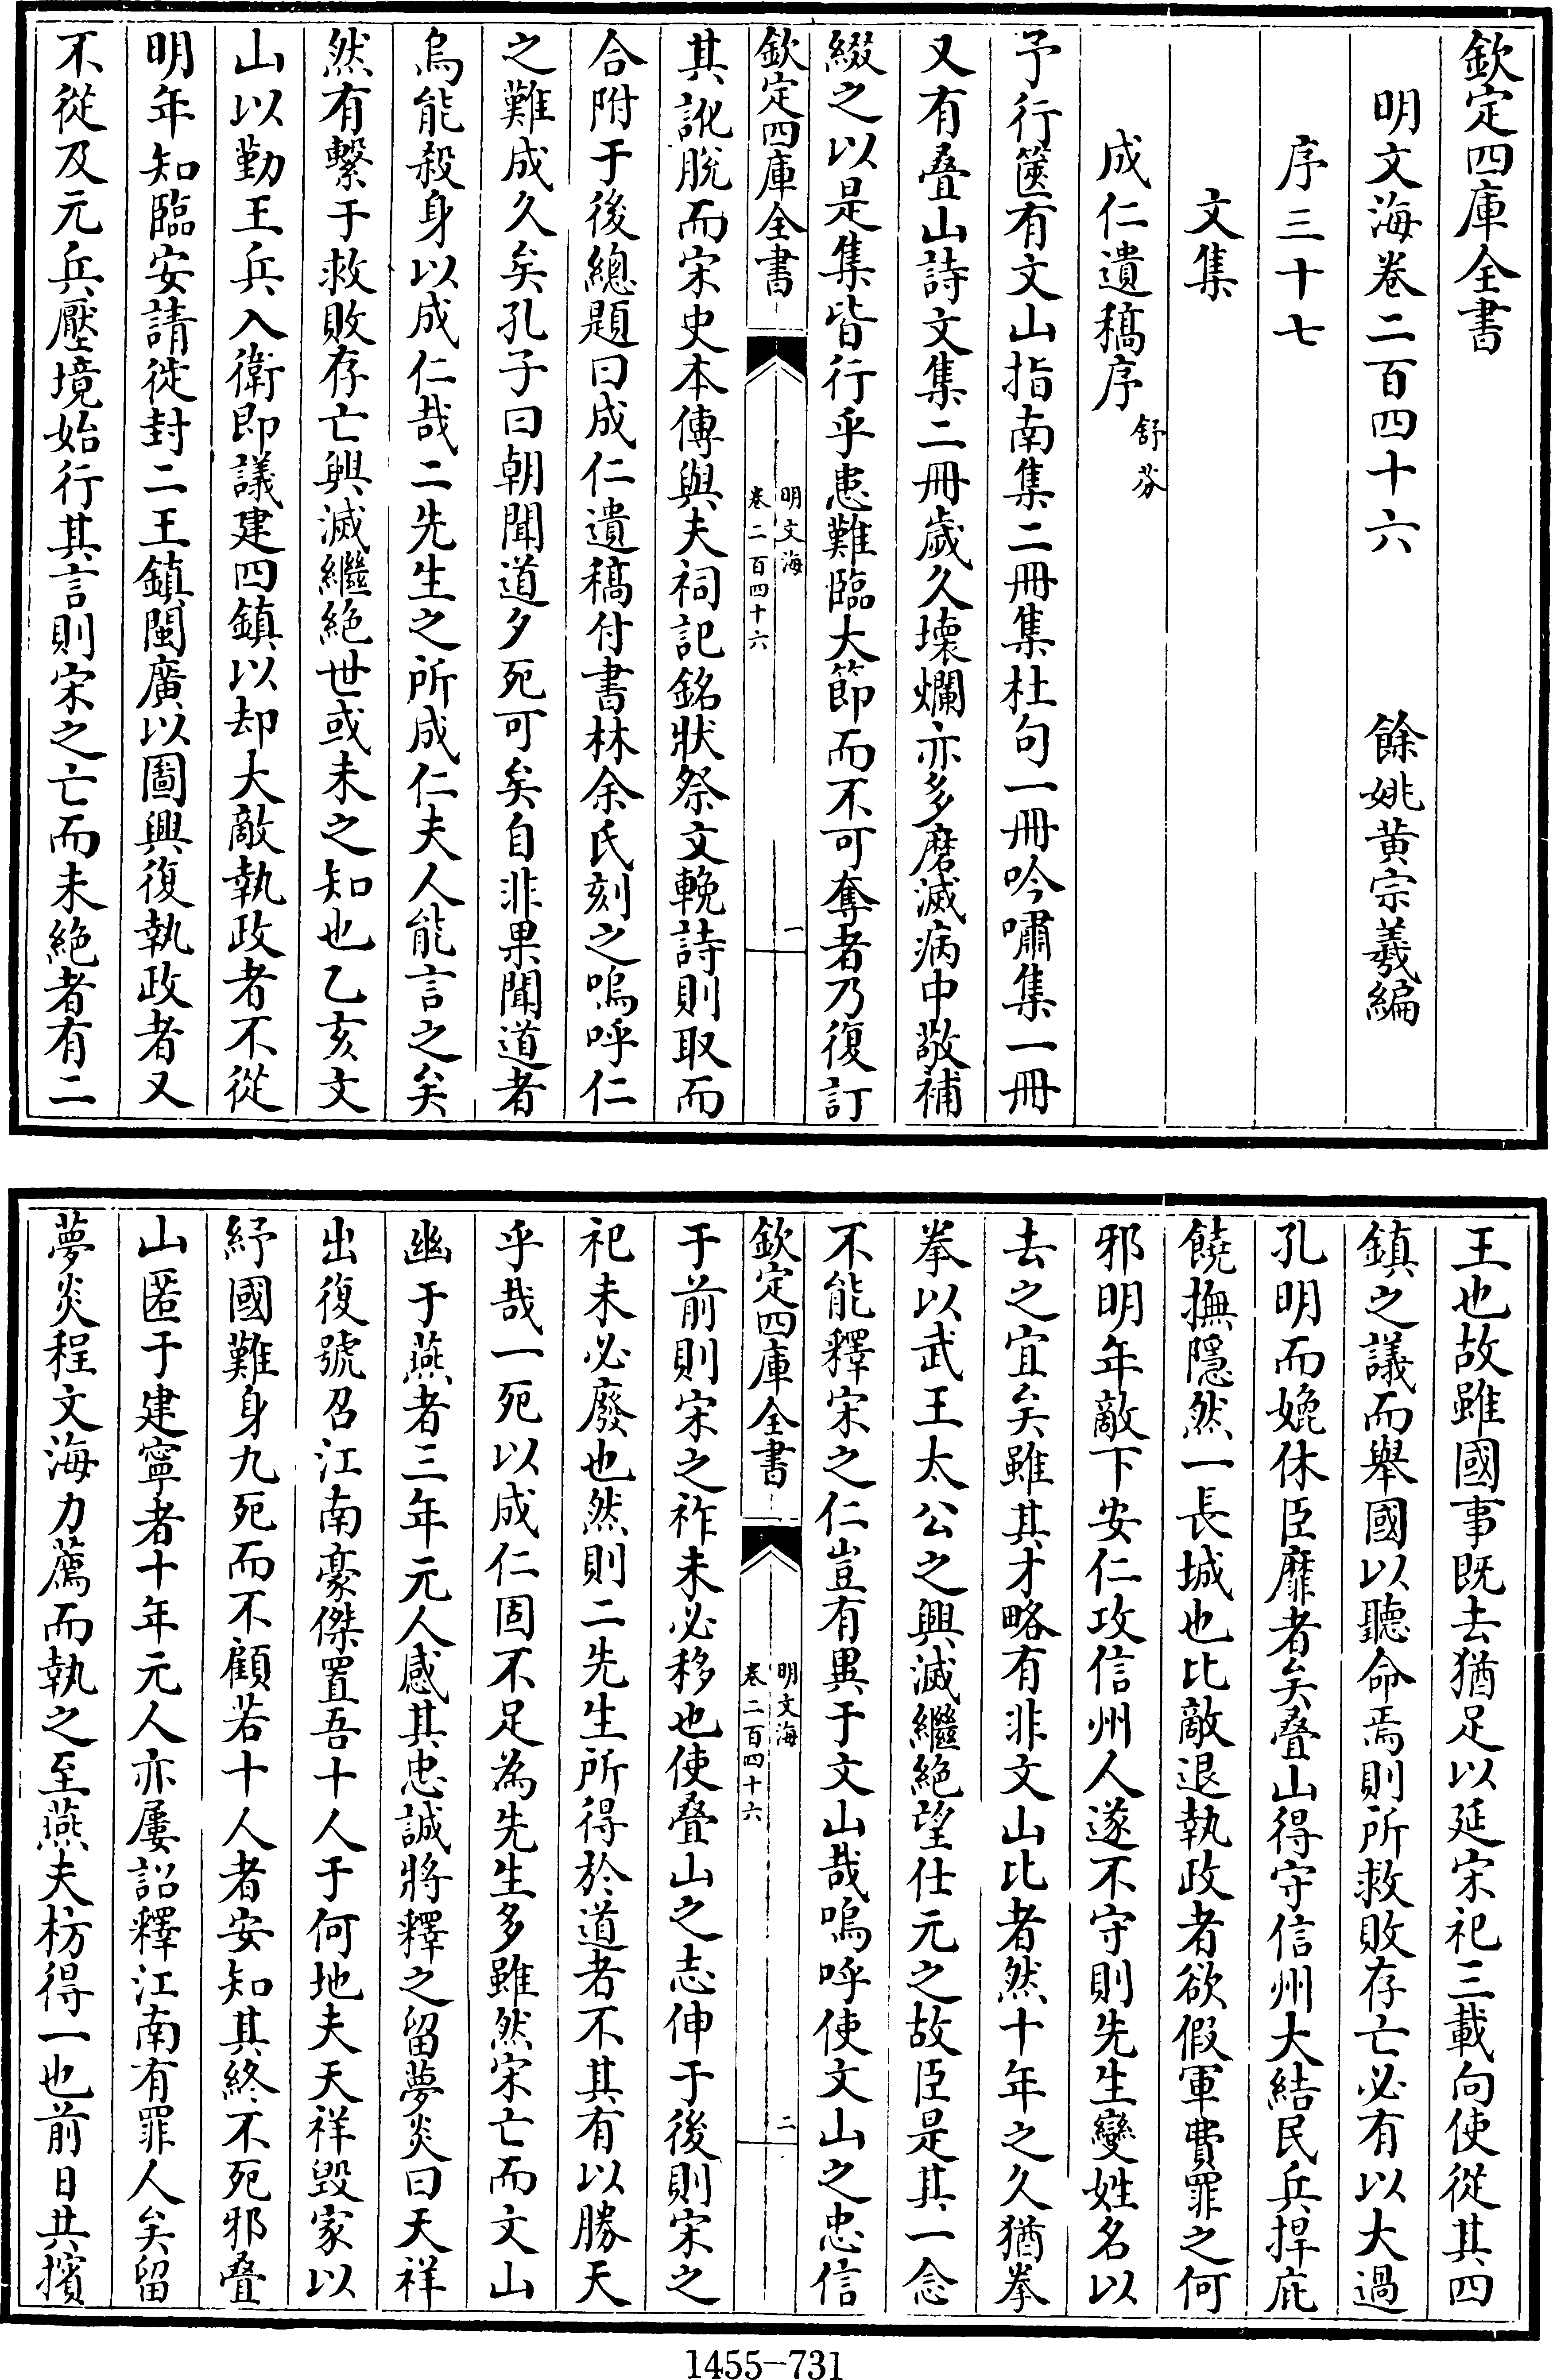 欽定四庫全書
明文海卷二百四十六　餘姚黄宗羲編
序三十七
文集
成仁遺稿序 舒芬
予行篋有文山指南集二冊集杜句一冊吟嘯集一冊
又有叠山詩文集二冊歲久壊爛亦多磨滅病中敬補
綴之以是集皆行乎患難臨大節而不可奪者乃復訂
欽定四庫全書
明文海
卷二百四十六
一
其訛脫而宋史本傳與夫祠記銘狀祭文輓詩則取而
合附于後總題曰成仁遺稿付書林余氏刻之嗚呼仁
之難成久矣孔子曰朝聞道夕死可矣自非果聞道者
烏能殺身以成仁哉二先生之所成仁夫人能言之矣
然有繫于救敗存亡興滅繼絕世或未之知也乙亥文
山以勤王兵入衛即議建四鎮以却大敵執政者不從
明年知臨安請徙封二王鎮閩廣以圖興復執政者又
不從及元兵壓境始行其言則宋之亡而未絕者有二
王也故雖國事既去猶足以延宋祀三載向使從其四
鎮之議而舉國以聽命焉則所救敗存亡必有以大過
孔明而娩休臣靡者矣叠山得守信州大結民兵捍庇
饒撫隱然一長城也比敵退執政者欲假軍費罪之何
邪明年敵下安仁攻信州人遂不守則先生變姓名以
去之宜矣雖其才略有非文山比者然十年之久猶拳
拳以武王太公之興滅繼絕望仕元之故臣是其一念
不能釋宋之仁豈有異于文山哉嗚呼使文山之忠信
欽定四庫全書
明文海
卷二百四十六
二
于前則宋之祚未必移也使叠山之志伸于後則宋之
祀未必廢也然則二先生所得於道者不其有以勝天
乎哉一死以成仁固不足為先生多雖然宋亡而文山
幽于燕者三年元人感其忠誠將釋之留夢炎曰天祥
出復號召江南豪傑置吾十人于何地夫天祥毀家以
紓國難身九死而不顧若十人者安知其終不死邪叠
山匿于建寧者十年元人亦屢詔釋江南有罪人矣留
夢炎程文海力薦而執之至燕夫枋得一也前日共擯
1455-731